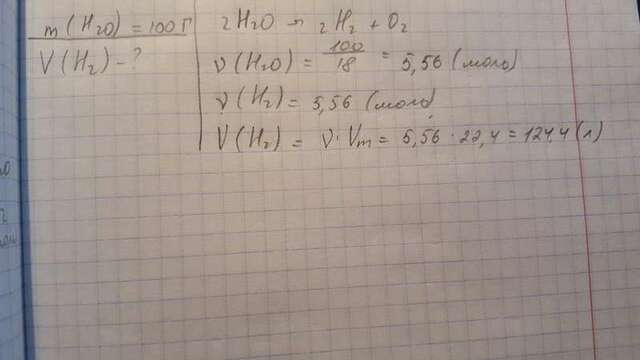 m (H₂O) = 100 Г
V (H₂) - ?
2H₂O → 2H₂ + O₂
ν (H₂O) = 100/18 = 5,56 (моль)
ν (H₂) = 5,56 (моль)
V (H₂) = ν · Vm = 5,56 · 22,4 = 124,4 (л)